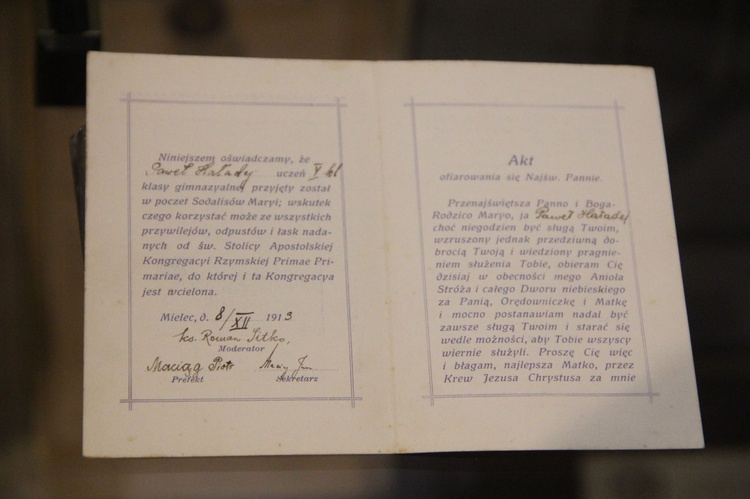 Niniejszem oświadczamy, że
Paweł Hałady uczeń V kl
klasy gimnazyalnej przyjęty został
w poczet Sodalisów Maryi; wskutek
czego korzystać może ze wszystkich
przywilejów, odpustów i łask nada-
nych od św. Stolicy Apostolskiej
Kongregacyi Rzymskiej Primae Pri-
mariae, do której i ta Kongregacya
jest wcielona.
Mielec, d. 8/XII 1913
ks. Roman Sitko,
Moderator
Maciąg Piotr
Prefekt Sekretarz
Akt
ofiarowania się Najśw. Pannie.
Przenajświętsza Panno i Boga-
Rodzico Maryo, ja Paweł Hałady
choć niegodzien być sługą Twoim,
wzruszony jednak przedziwną do-
brocią Twoją i wiedziony pragnie-
niem służenia Tobie, obieram Cię
dzisiaj w obecności mego Anioła
Stróża i całego Dworu niebieskiego
za Panią, Orędowniczkę i Matkę
i mocno postanawiam nadal być
zawsze sługą Twoim i starać się
wedle możności, aby Tobie wszyscy
wiernie służyli. Proszę Cię więc
i błagam, najlepsza Matko, przez
Krew Jezusa Chrystusa za mnie